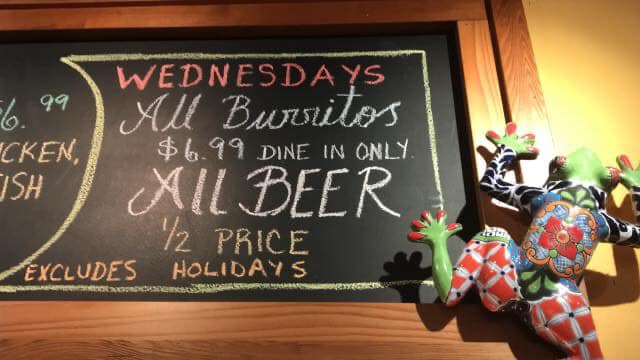 6.99
WEDNESDAYS
All Burritos
$6.99 DINE IN ONLY.
All BEER
1/2 PRICE
EXCLUDES HOLIDAYS